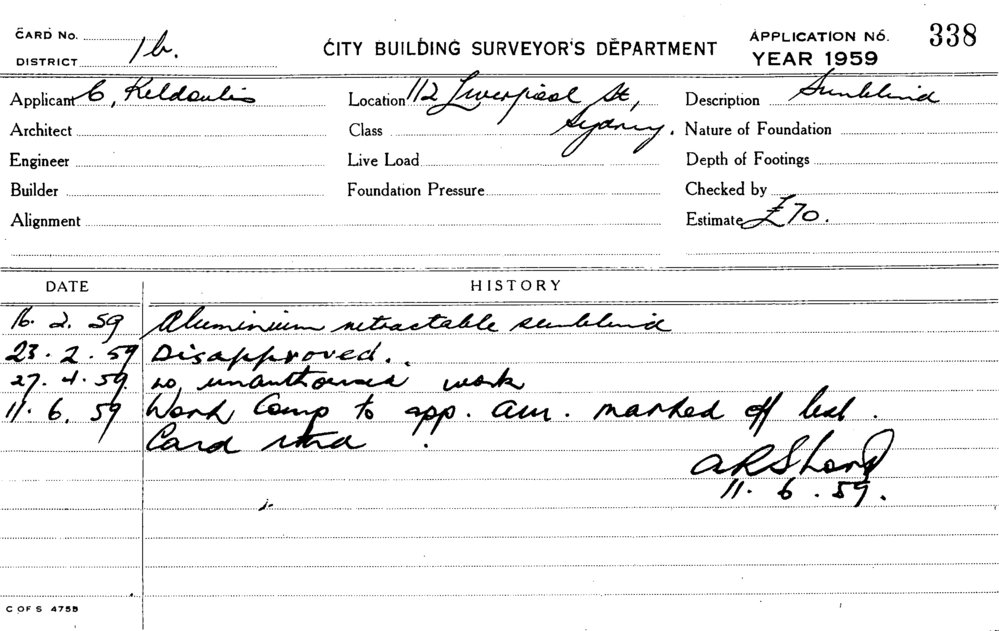 CARD No.
DISTRICT 1b.
CITY BUILDING SURVEYOR'S DEPARTMENT
APPLICATION No. 338
YEAR 1959
Applicant C. Keldoulis
Location 112 Liverpool St,
Sydney.
Description Sunblind
Architect
Class
Nature of Foundation
Engineer
Live Load
Depth of Footings
Builder
Foundation Pressure
Checked by
Alignment
Estimate £70.
DATE HISTORY
16. 2. 59 Aluminium retractable sunblind
23. 2. 59 Disapproved.
27. 4. 59. no unauthorised work
11. 6. 59 Work Comp to app. marked off
Card
11. 6. 59.
C OF S 475B